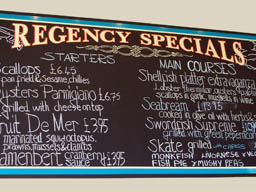 REGENCY SPECIALS
STARTERS
Scallops £6.45
pan fried & Sesame, chillies
Oysters Parmigiano £6.75
grilled with cheese on top
Fruit De Mer
marinated squid, octopus,
prawns, mussels & clams
Camembert cranberry sauce £3.95
MAIN COURSES
Shellfish platter extravaganza
scallops in garlic, in wine
Seabream £13.95
cooked in with herbs &
Swordfish Supreme
grilled with green peppercorn
Skate grilled CAPERS
MONKFISH MORNAY
FISH PIE & MUSHY PEAS